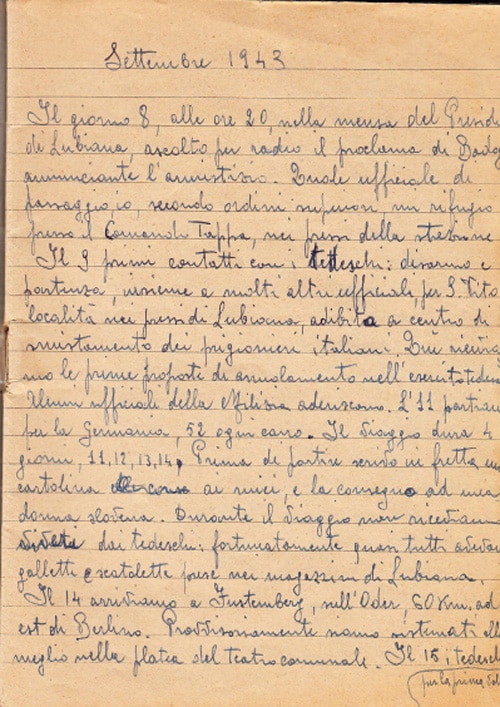 Settembre 1943
Il giorno 8, alle ore 20, nella mensa del Presidi
di Lubiana, ascolto per radio il proclama di Badog
annunciante l'armistizio. Quale ufficiale di
passaggio io, secondo ordini superiori, mi rifugio
presso il Comando Tappa, nei pressi della stazione
Il 9 primi contatti con i tedeschi: disarmo e
partenza, insieme a molti altri ufficiali, per S. Vito
località nei pressi di Lubiana, adibita a centro di
smistamento dei prigionieri italiani. Qui
mo le prime proposte di arruolamento nell'esercito tedes
Alcuni ufficiali della Milizia aderiscono. L'11 partia
per la Germania, 52 ogni carro. Il viaggio dura 4
giorni, 11, 12, 13, 14. Prima di partire scrivo in fretta un
cartolina ai miei, e la consegno ad una
donna slovena. Durante il viaggio non riceviam
viveri dai tedeschi: fortunatamente quasi tutti aveva
gallette e scatolette prese nei magazzini di Lubiana.
Il 14 arriviamo a Fustemberg, sull'Oder, 60 Km. ad
est di Berlino. Provvisoriamente siamo sistemati alla
meglio nella platea del teatro comunale. Il 15 i tedesch
per la prima vol